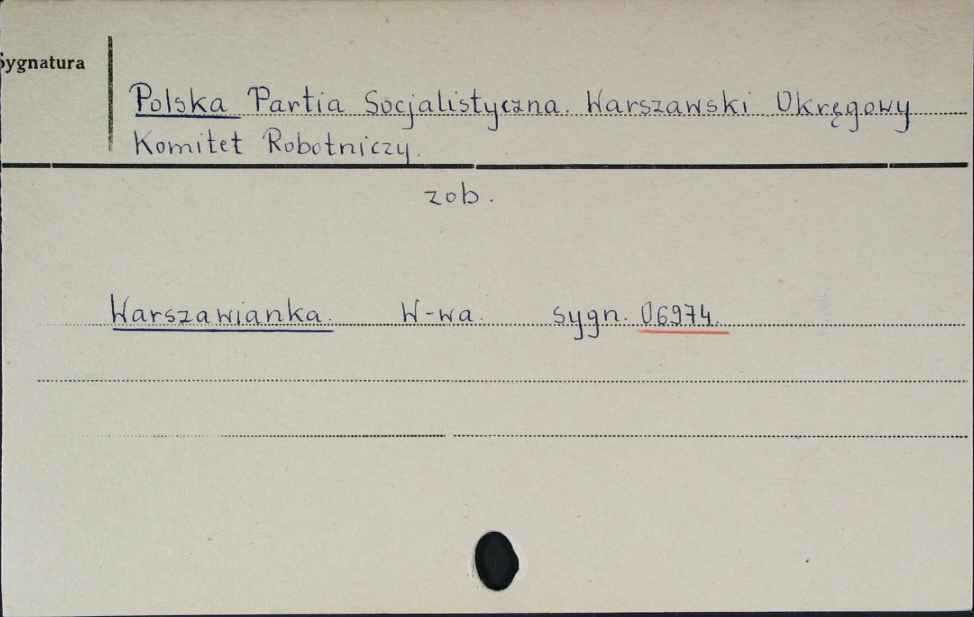 Sygnatura
Polska Partia Socjalistyczna. Warszawski Okręgowy
Komitet Robotniczy.
zob.
Warszawianka. W-wa. sygn. 06974.